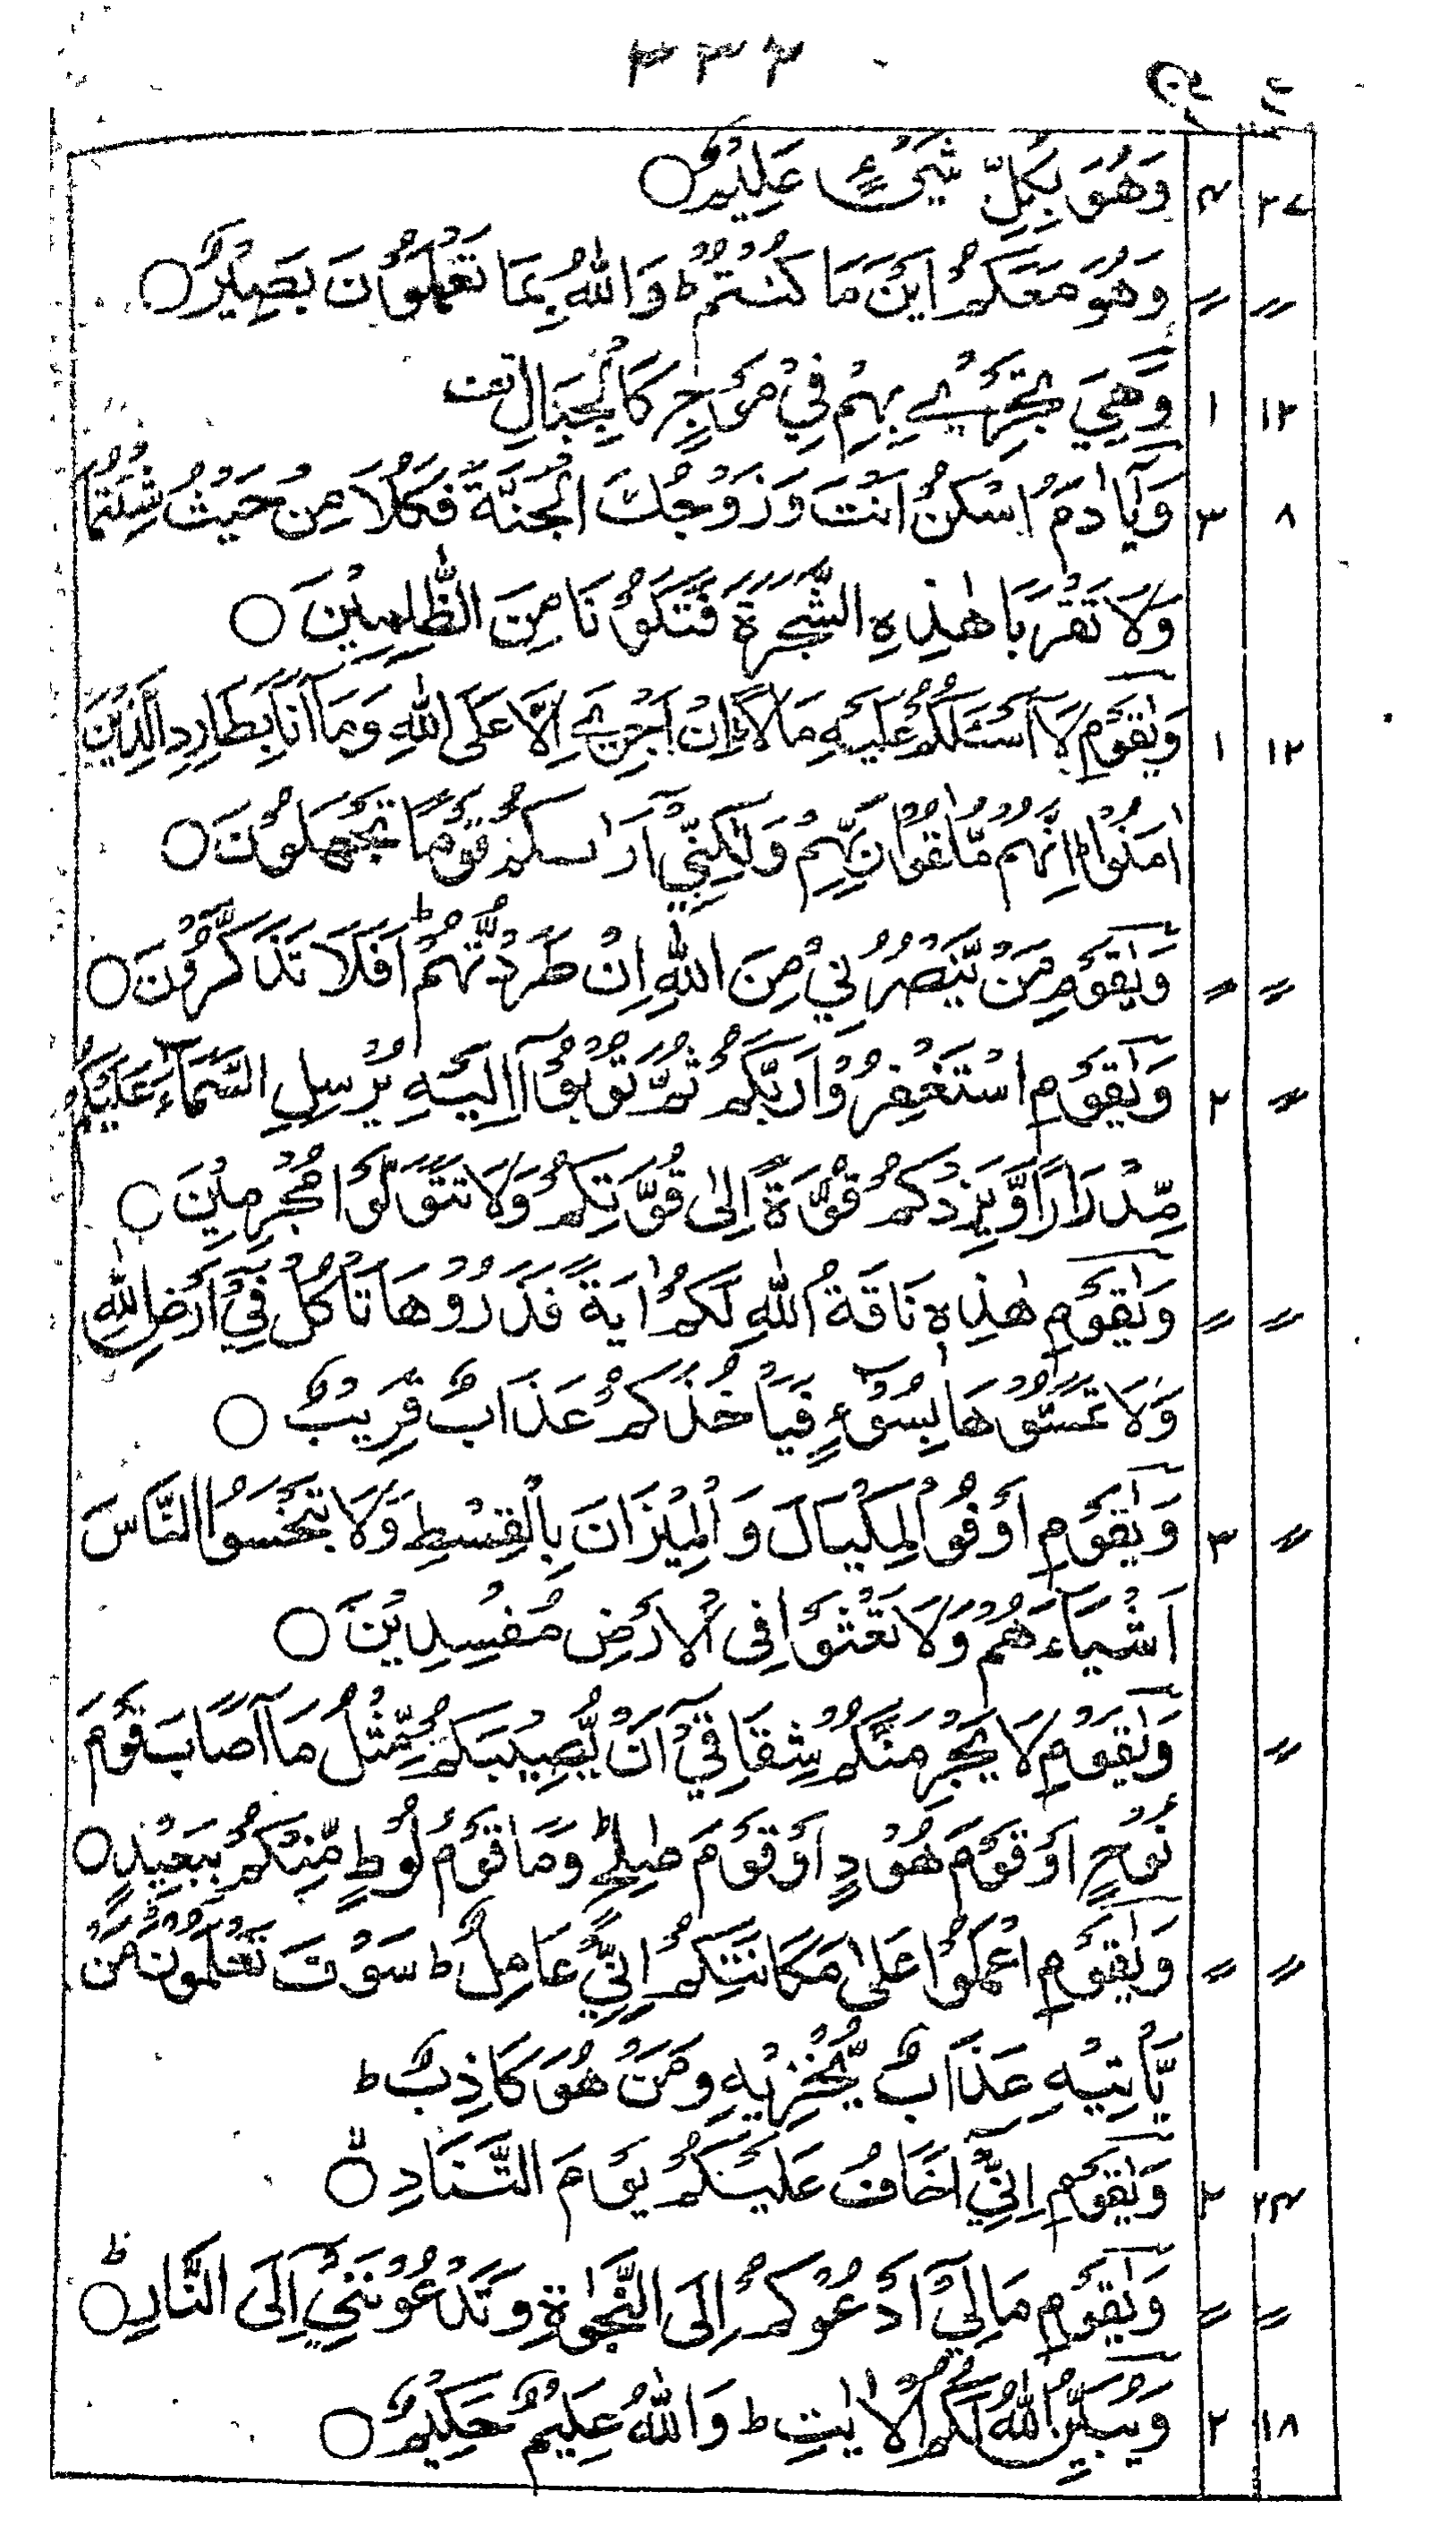 ۳۳۶
۲۷ ۴ وَهُوَ بِكُلِّ شَيْءٍ عَلِيْمٌ ○
〃 〃 وَهُوَ مَعَكُمْ اَيْنَ مَا كُنْتُمْ ؕ وَاللّٰهُ بِمَا تَعْمَلُوْنَ بَصِيْرٌ ○
۱۲ ۱ وَهِيَ تَجْرِيْ بِهِمْ فِيْ مَوْجٍ كَالْجِبَالِ
۸ ۳ وَيَآ اٰدَمُ اسْكُنْ اَنْتَ وَزَوْجُكَ الْجَنَّةَ فَكُلَا مِنْ حَيْثُ شِئْتُمَا
وَلَا تَقْرَبَا هٰذِهِ الشَّجَرَةَ فَتَكُوْنَا مِنَ الظّٰلِمِيْنَ ○
۱۲ ۱ وَيٰقَوْمِ لَآ اَسْـَٔلُكُمْ عَلَيْهِ مَالًا ؕ اِنْ اَجْرِيَ اِلَّا عَلَى اللّٰهِ وَمَآ اَنَا بِطَارِدِ الَّذِيْنَ
اٰمَنُوْا ؕ اِنَّهُمْ مُّلٰقُوْا رَبِّهِمْ وَلٰكِنِّيْٓ اَرٰىكُمْ قَوْمًا تَجْهَلُوْنَ ○
〃 〃 وَيٰقَوْمِ مَنْ يَّنْصُرُنِيْ مِنَ اللّٰهِ اِنْ طَرَدْتُّهُمْ ؕ اَفَلَا تَذَكَّرُوْنَ ○
〃 ۲ وَيٰقَوْمِ اسْتَغْفِرُوْا رَبَّكُمْ ثُمَّ تُوْبُوْٓا اِلَيْهِ يُرْسِلِ السَّمَآءَ عَلَيْكُمْ
مِّدْرَارًا وَّيَزِدْكُمْ قُوَّةً اِلٰى قُوَّتِكُمْ وَلَا تَتَوَلَّوْا مُجْرِمِيْنَ ○
〃 〃 وَيٰقَوْمِ هٰذِهٖ نَاقَةُ اللّٰهِ لَكُمْ اٰيَةً فَذَرُوْهَا تَاْكُلْ فِيْٓ اَرْضِ اللّٰهِ
وَلَا تَمَسُّوْهَا بِسُوْٓءٍ فَيَاْخُذَكُمْ عَذَابٌ قَرِيْبٌ ○
〃 ۳ وَيٰقَوْمِ اَوْفُوا الْمِكْيَالَ وَالْمِيْزَانَ بِالْقِسْطِ وَلَا تَبْخَسُوا النَّاسَ
اَشْيَآءَهُمْ وَلَا تَعْثَوْا فِى الْاَرْضِ مُفْسِدِيْنَ ○
〃 وَيٰقَوْمِ لَا يَجْرِمَنَّكُمْ شِقَاقِيْٓ اَنْ يُّصِيْبَكُمْ مِّثْلُ مَآ اَصَابَ قَوْمَ
نُوْحٍ اَوْ قَوْمَ هُوْدٍ اَوْ قَوْمَ صٰلِحٍ ؕ وَمَا قَوْمُ لُوْطٍ مِّنْكُمْ بِبَعِيْدٍ ○
〃 〃 وَيٰقَوْمِ اعْمَلُوْا عَلٰى مَكَانَتِكُمْ اِنِّيْ عَامِلٌ ؕ سَوْفَ تَعْلَمُوْنَ مَنْ
يَّاْتِيْهِ عَذَابٌ يُّخْزِيْهِ وَمَنْ هُوَ كَاذِبٌ ؕ
۲۴ ۲ وَيٰقَوْمِ اِنِّيْٓ اَخَافُ عَلَيْكُمْ يَوْمَ التَّنَادِ ○
〃 〃 وَيٰقَوْمِ مَا لِيْٓ اَدْعُوْكُمْ اِلَى النَّجٰوةِ وَتَدْعُوْنَنِيْٓ اِلَى النَّارِ ○ ؕ
۱۸ ۲ وَيُبَيِّنُ اللّٰهُ لَكُمُ الْاٰيٰتِ ؕ وَاللّٰهُ عَلِيْمٌ حَكِيْمٌ ○